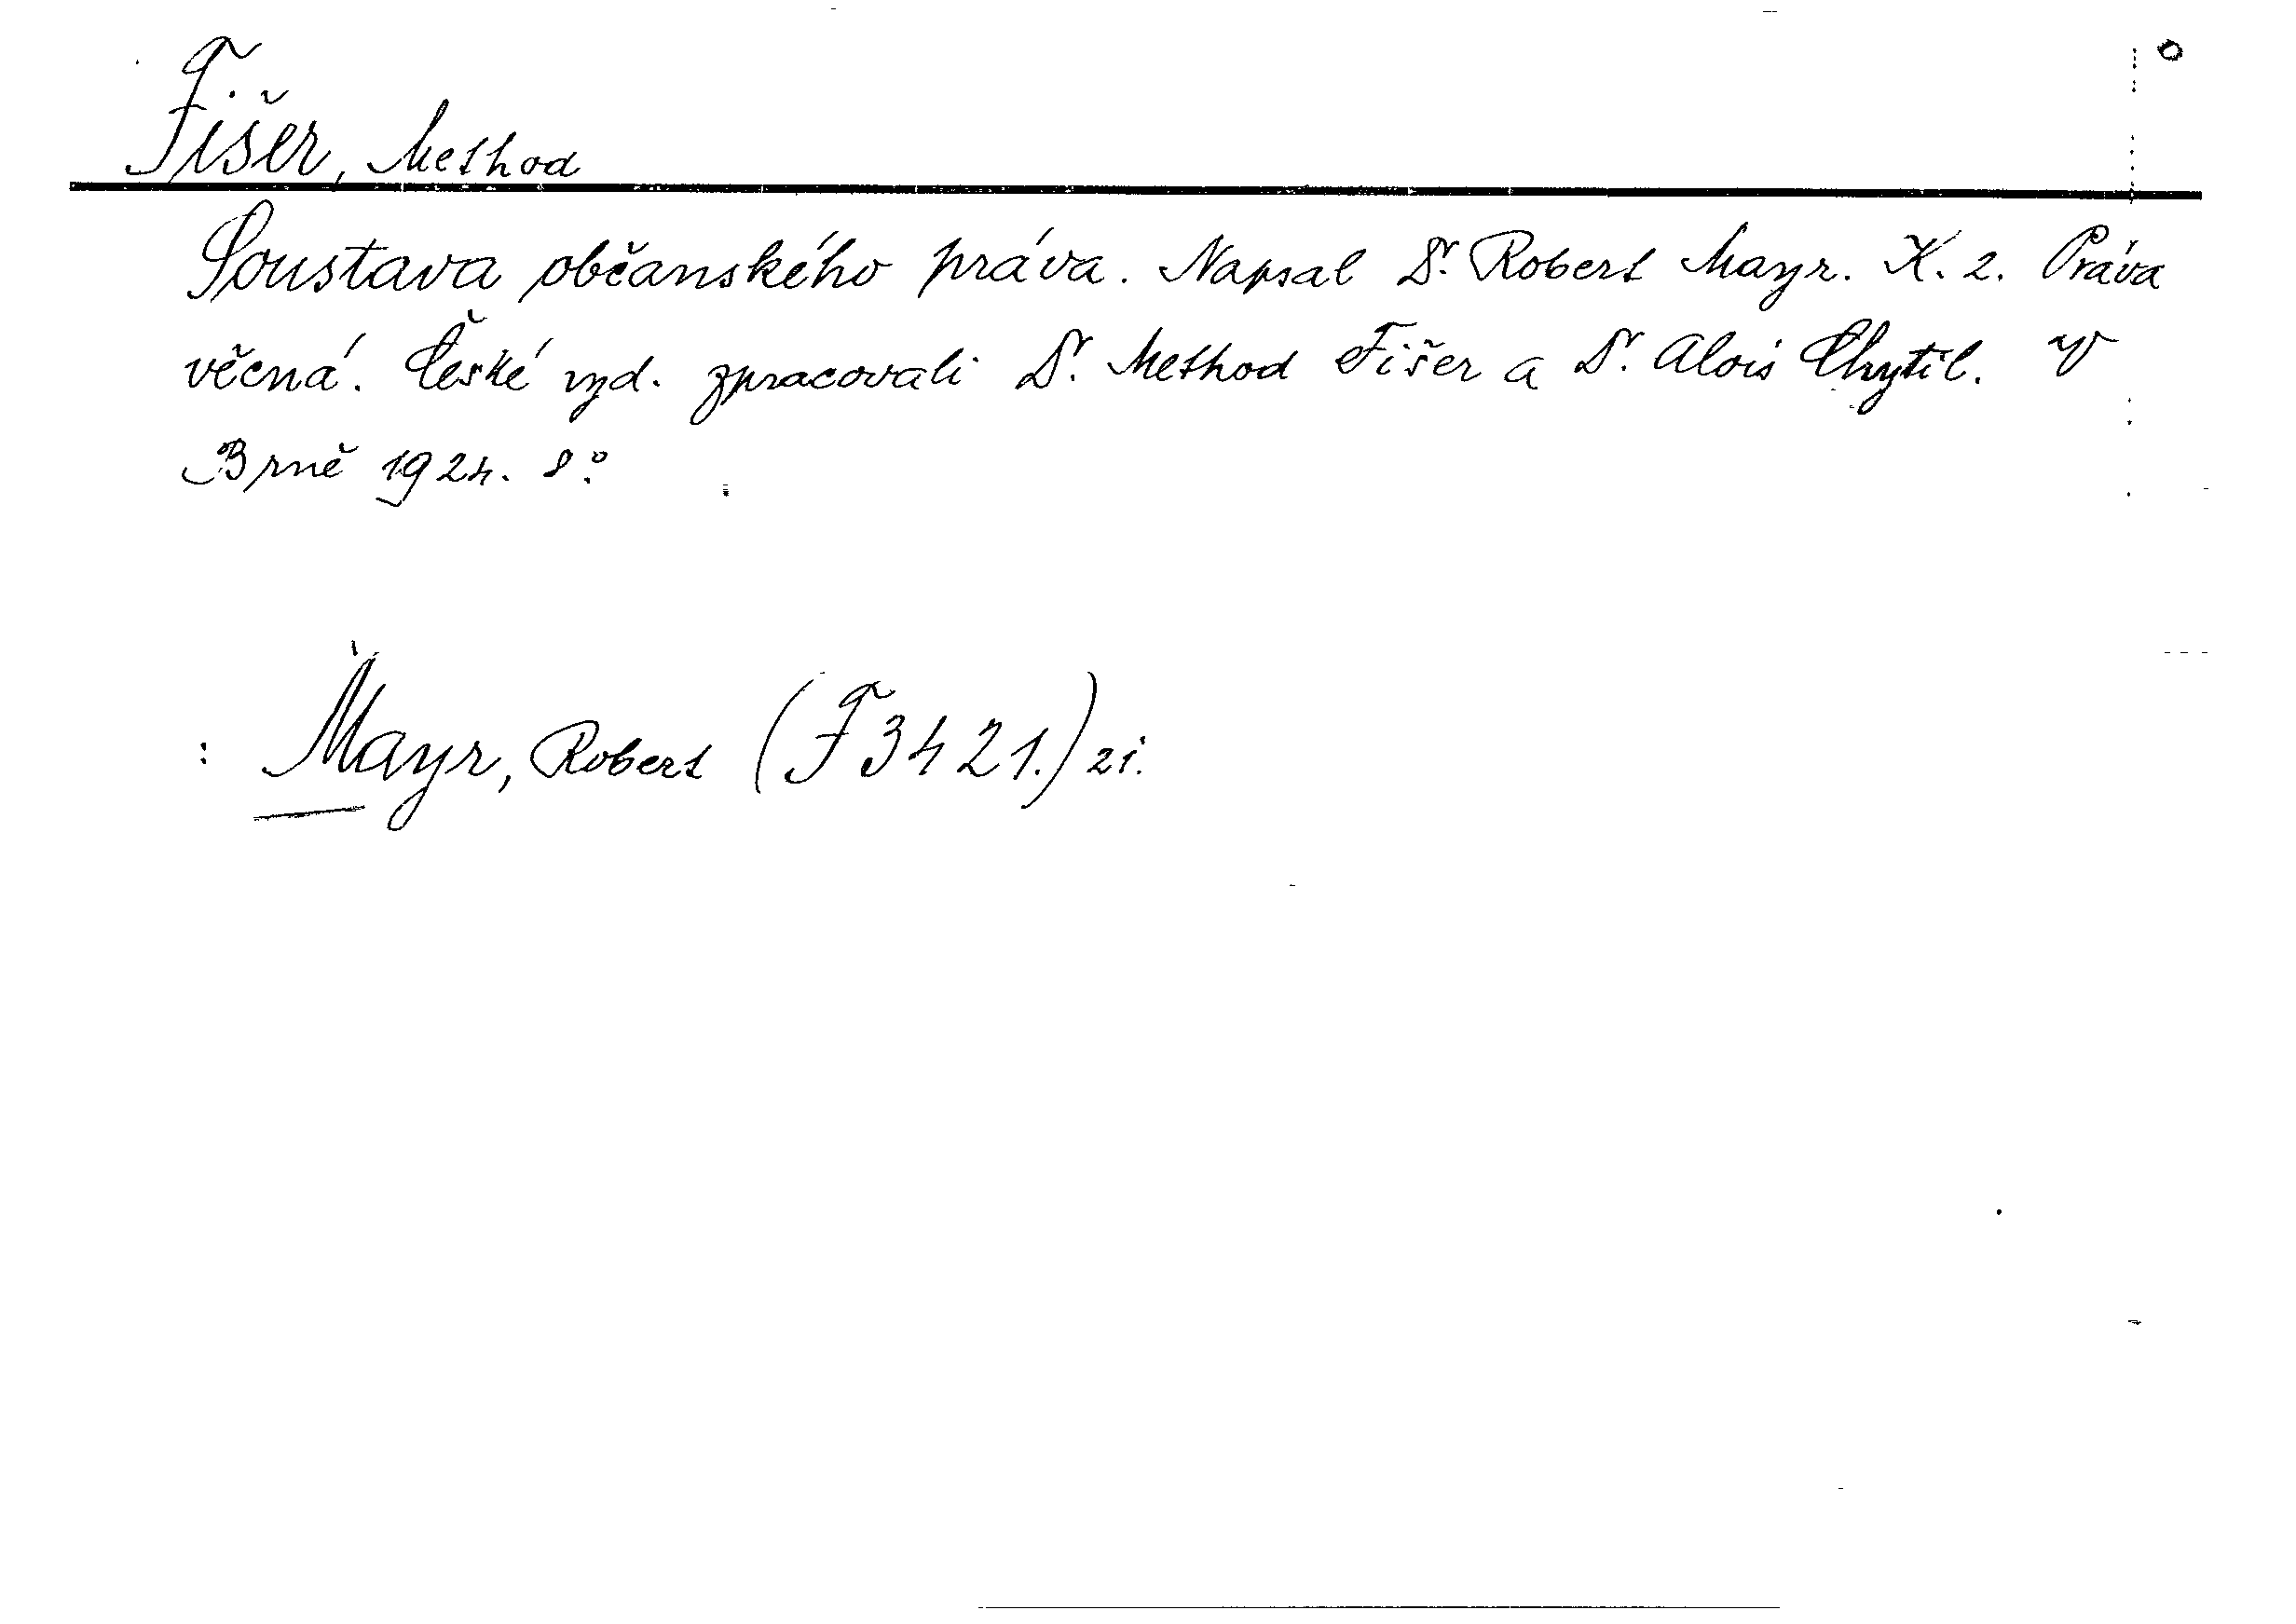 Fišer, Method
Soustava občanského práva. Napsal Dr. Robert Mayr. K. 2. Práva
věcná. České vyd. zpracovali Dr. Method Fišer a Dr. Alois Chytil. V
Brně 1924. 8°.
: Mayr, Robert (F 3421.) 2i.